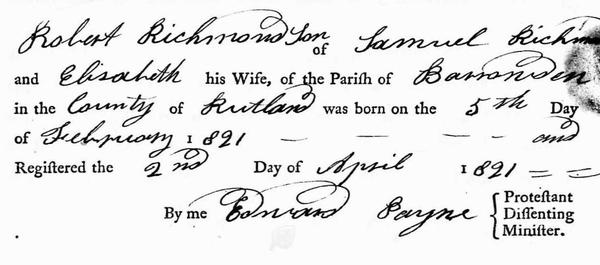 Robert Richmond Son of Samuel Richm
and Elisabeth his Wife, of the Pariſh of Barrowden
in the County of Rutland was born on the 5th Day
of February 1821 — — — — and
Regiſtered the 2nd Day of April 1821 = =
By me Edward Payne { Proteſtant
Diſſenting
Miniſter.